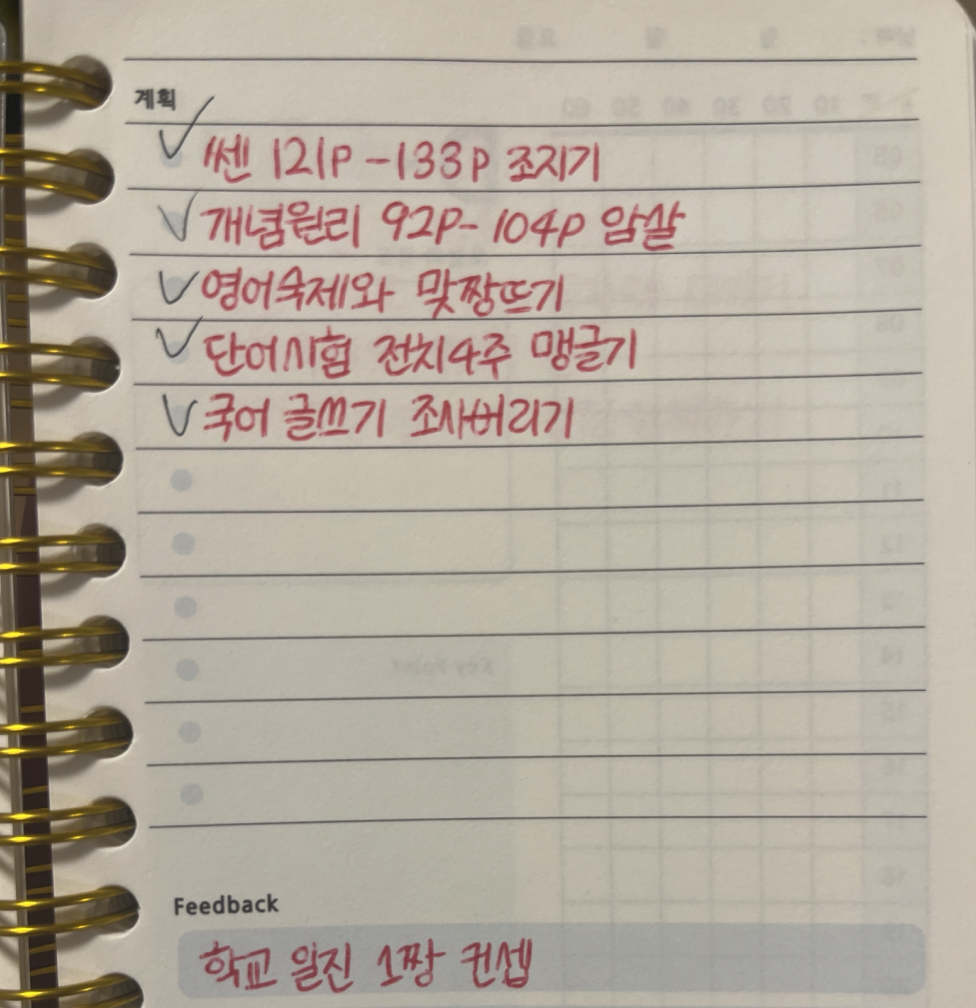 계획
쎈 121P - 133P 조지기
개념원리 92P- 104P 암살
영어숙제와 맞짱뜨기
단어시험 전치4주 맹글기
국어 글쓰기 조사버리기
Feedback
학교 일진 1짱 컨셉